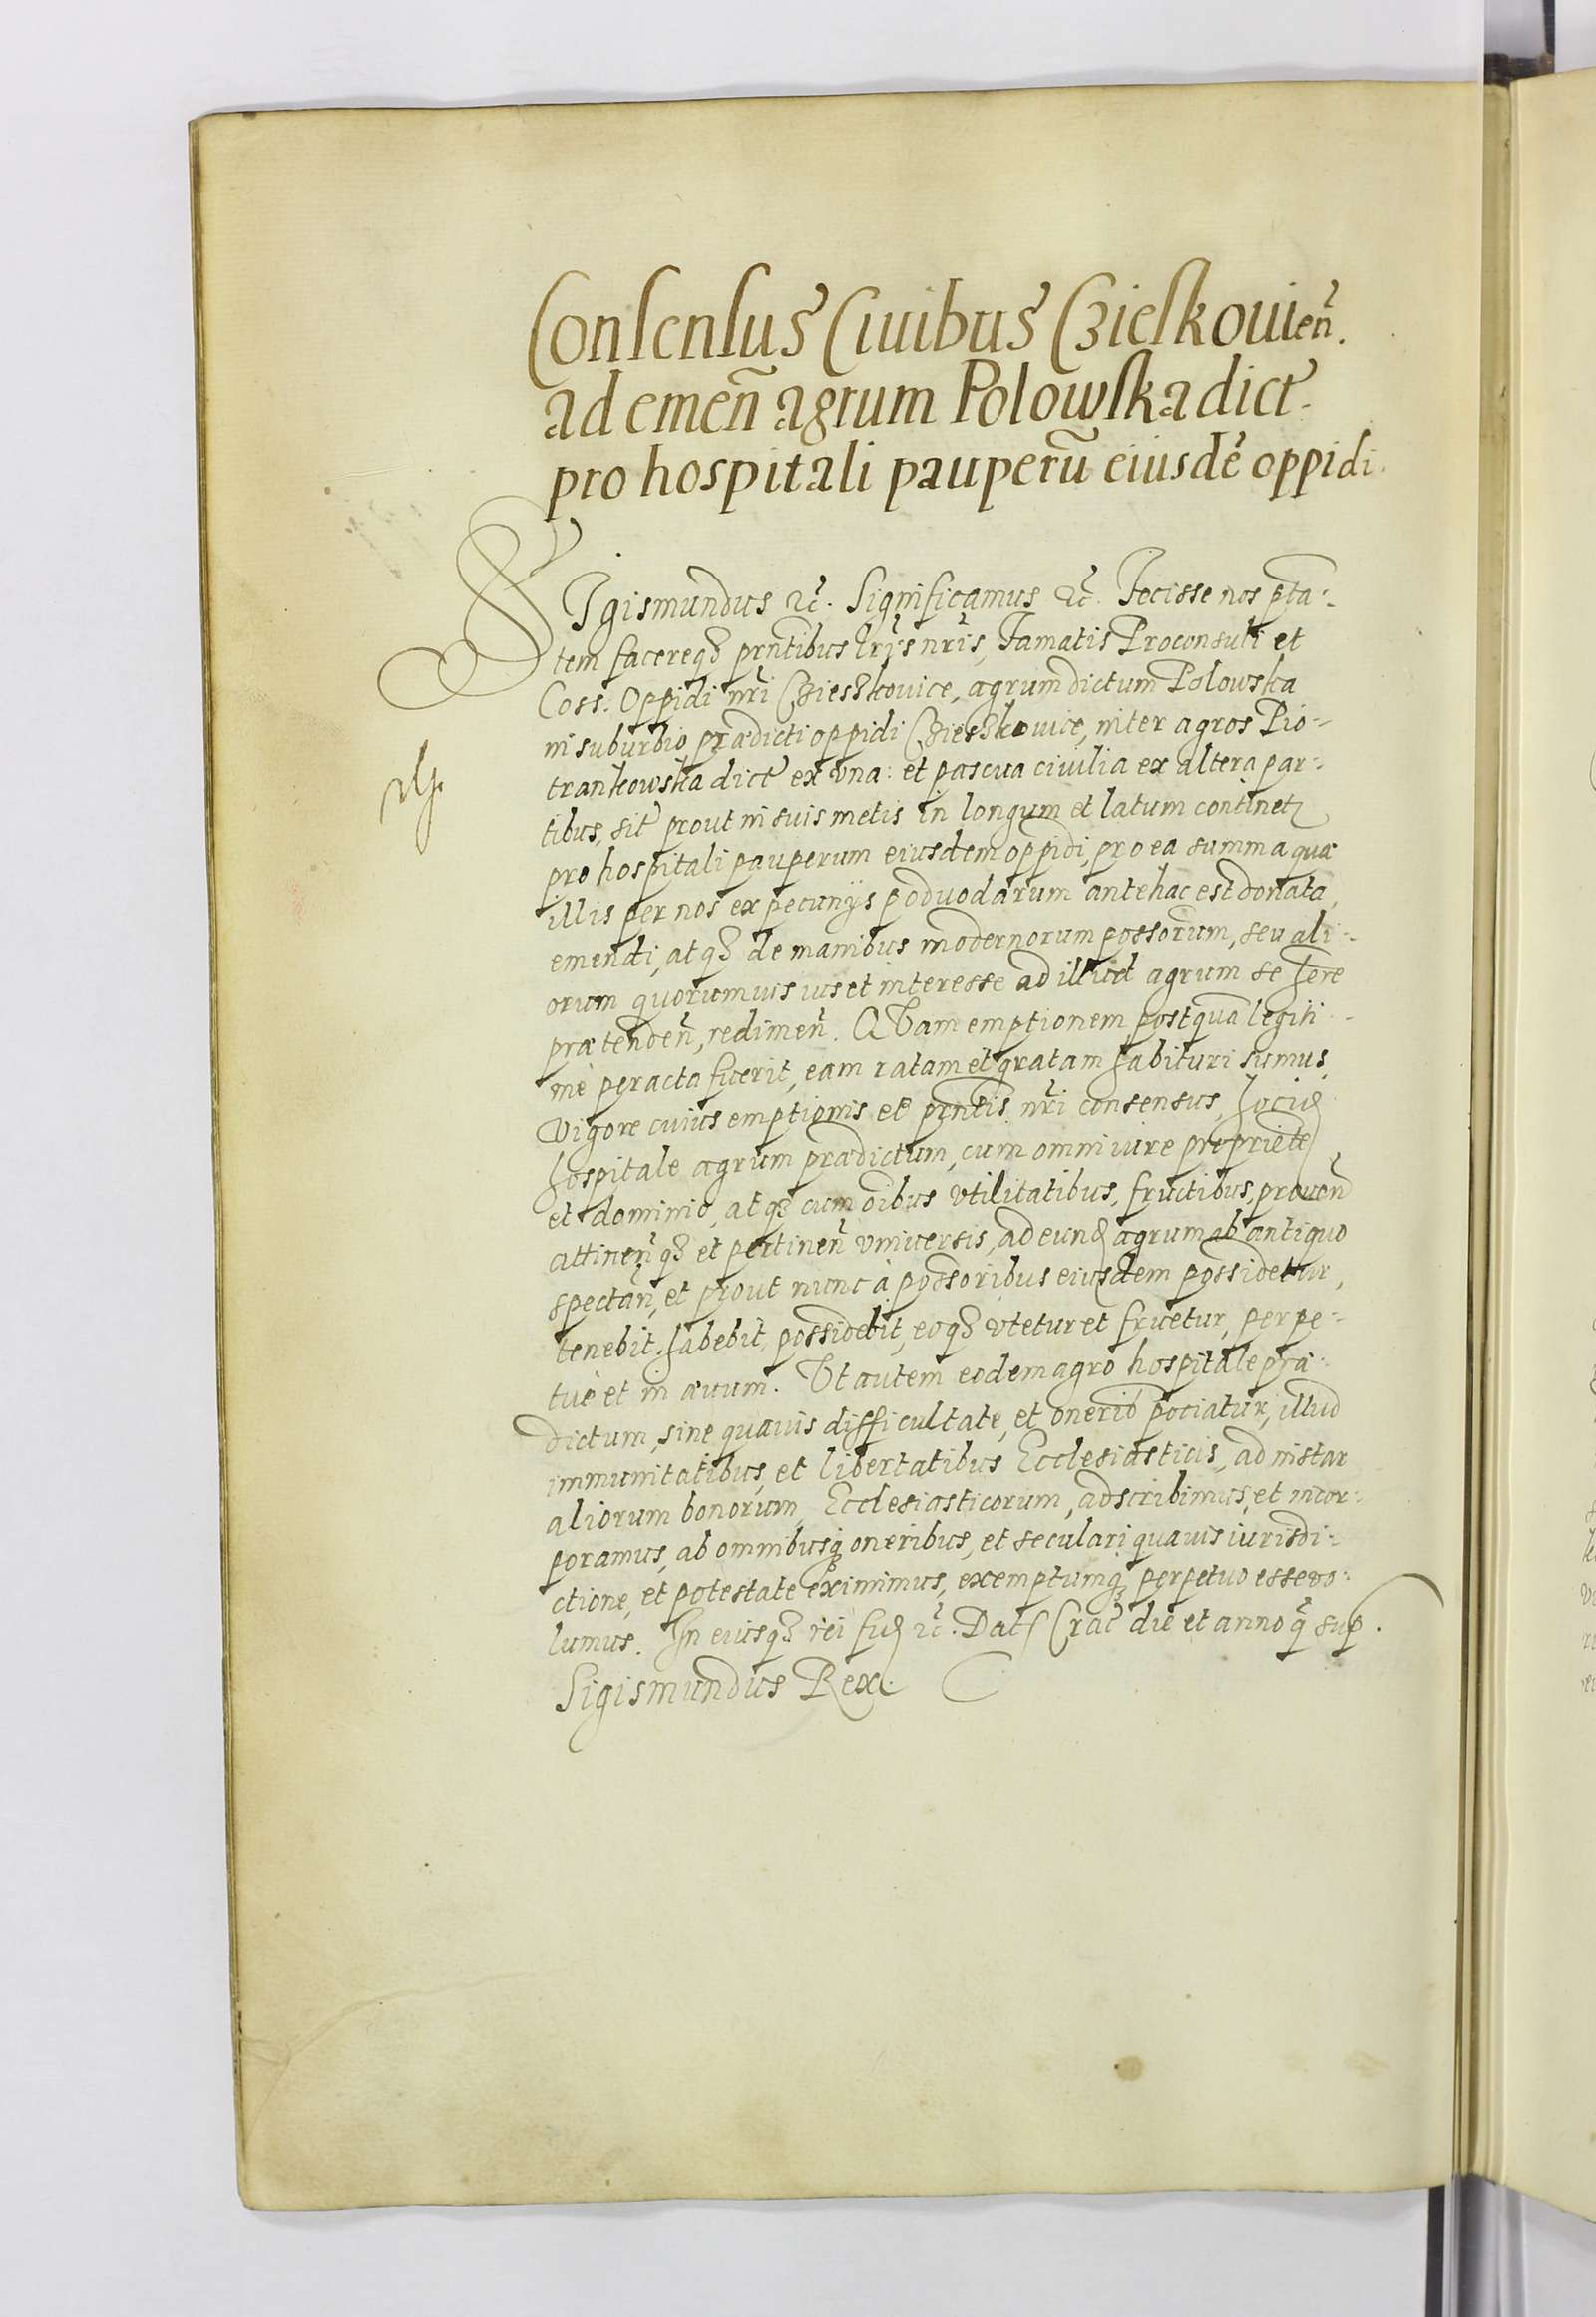 Consensus Ciuibus Czieskouien̄.
ad emen̄ agrum Polowska dict.
pro hospitali pauperū eiusdē oppidi.
SIgismundus ꝛc̄. Significamus ꝛc̄. Fecisse nos pt̄a-
tem facereqꝫ pn̄tibus lr̄ys nr̄is, Famatis Proconsuli et
Coss. Oppidi nr̄i Czieszkouice, agrum dictum Polowska
in suburbio prædicti oppidi Czieszkouice, inter agros Pio-
trankowska dict ex vna: et pascua ciuilia ex altera par-
tibus, sit prout in suis metis in longum et latum continetꝫ
pro hospitali pauperum eiusdem oppidi, pro ea summa quæ
illis per nos ex pecunijs poduodarum antehac est donata,
emendi, atqꝫ de manibus modernorum possorum, seu ali-
orum quorumuis ius et interesse ad illud agrum se here
prætenden̄, redimen̄. Quam emptionem, postquā legiti-
mè peracta fuerit, eam ratam et gratam habituri sumus,
Vigore cuius emptionis et pn̄tis nr̄i consensus,
hospitale agrum prædictum, cum omni iure propriete
et dominio, atqꝫ cum oībus vtilitatibus, fructibus, prouen̄
attinen̄qꝫ et pertinen̄ vniuersis, ad eund agrum ab antiquo
spectan̄, et prout nunc à possoribus eiusdem possidetur,
tenebit, habebit, possidebit, eoqꝫ vtetur et fruetur, perpe-
tuò et in æuum. Vt autem eodem agro hospitale præ-
dictum, sine quauis difficultate, et onerib pociatur, illud
immunitatibus, et libertatibus Ecclesiasticis, ad instar
aliorum bonorum Ecclesiasticorum, adscribimus, et incor-
poramus, ab omnibusqꝫ oneribus, et seculari quauis iurisdi-
ctione, et potestate eximimus, exemptumqꝫ perpetuo esse vo-
lumus. In cuiusqꝫ rei fid ꝛc̄. Dat Crac̄ die et anno q̄ sup.
Sigismundus Rex.